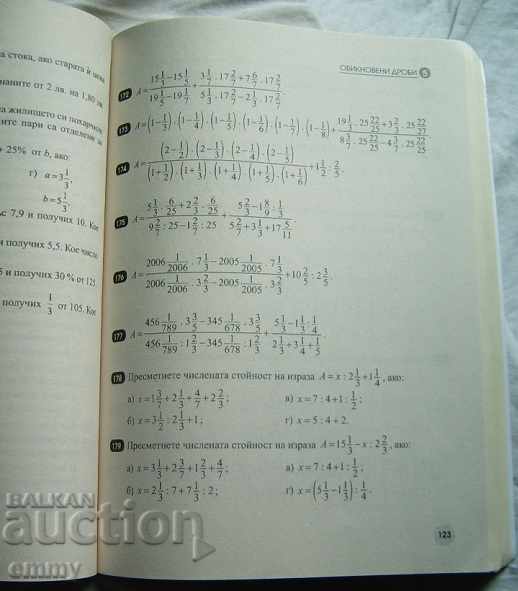 а стока, ако старата ѝ цена
маните от 2 лв. на 1,80 лв
а жилището си похарчиха
ите пари са отделени за
+ 25% от b, ако:
г) a=3 1/3,
b=5 1/3.
с 7,9 и получих 10. Кое
и получих 5,5. Кое число
5 и получих 30 % от 125.
получих 1/3 от 105. Кое
ОБИКНОВЕНИ ДРОБИ 5
172 A = (15 1/3 − 15 1/5)/(19 1/5 − 19 1/7) + (3 1/7 . 17 2/7 + 7 6/7 . 17 2/7)/(5 1/3 . 17 2/7 − 2 1/3 . 17 2/7)
173 A = (1−1/3).(1−1/4).(1−1/5).(1−1/6).(1−1/7).(1−1/8) + (19 1/3 . 25 22/25 + 3 2/3 . 25 22/27)/(8 3/7 . 25 22/25 − 4 3/7 . 25 22/25)
174 A = ((2−1/2).(2−1/3).(2−1/4).(2−1/5))/((1+1/2).(1+1/3).(1+1/4).(1+1/5).(1+1/6)) + 1 1/2 . 2/5.
175 A = (5 1/3 . 6/25 + 2 2/3 . 6/25)/(9 2/7 : 25 − 1 2/7 : 25) + (5 2/3 − 1 8/9 : 1/3)/(5 2/7 + 3 1/3 + 17 5/11)
176 A = (2006 1/2006 . 7 1/3 − 2005 1/2005 . 7 1/3)/(2006 1/2006 . 3 2/3 − 2005 1/2005 . 3 2/3) + 10 2/5 : 2 3/5.
177 A = (456 1/789 . 3 3/5 − 345 1/678 . 3 3/5)/(456 1/789 : 1 2/3 − 345 1/678 : 1 2/3) + (5 1/3 − 1 1/3 : 1/4)/(2 1/3 + 3 1/4 + 1/5)
178 Пресметнете числената стойност на израза A = x : 2 1/3 + 1 1/4, ако:
а) x = 1 3/7 + 2 1/3 + 4/7 + 2 2/3; в) x = 7 : 4 + 1 : 1/2;
б) x = 3 1/2 : 2 1/3 + 1; г) x = 5 : 4 + 2.
179 Пресметнете числената стойност на израза A = 15 1/3 − x : 2 2/3, ако:
а) x = 3 1/3 + 2 3/7 + 1 2/3 + 4/7; в) x = 7 : 4 + 1 : 1/2;
б) x = 2 1/3 : 7 + 7 1/3 : 2; г) x = (5 1/3 − 1 1/3) : 1/4.
BALKAN
auction
emmy
123